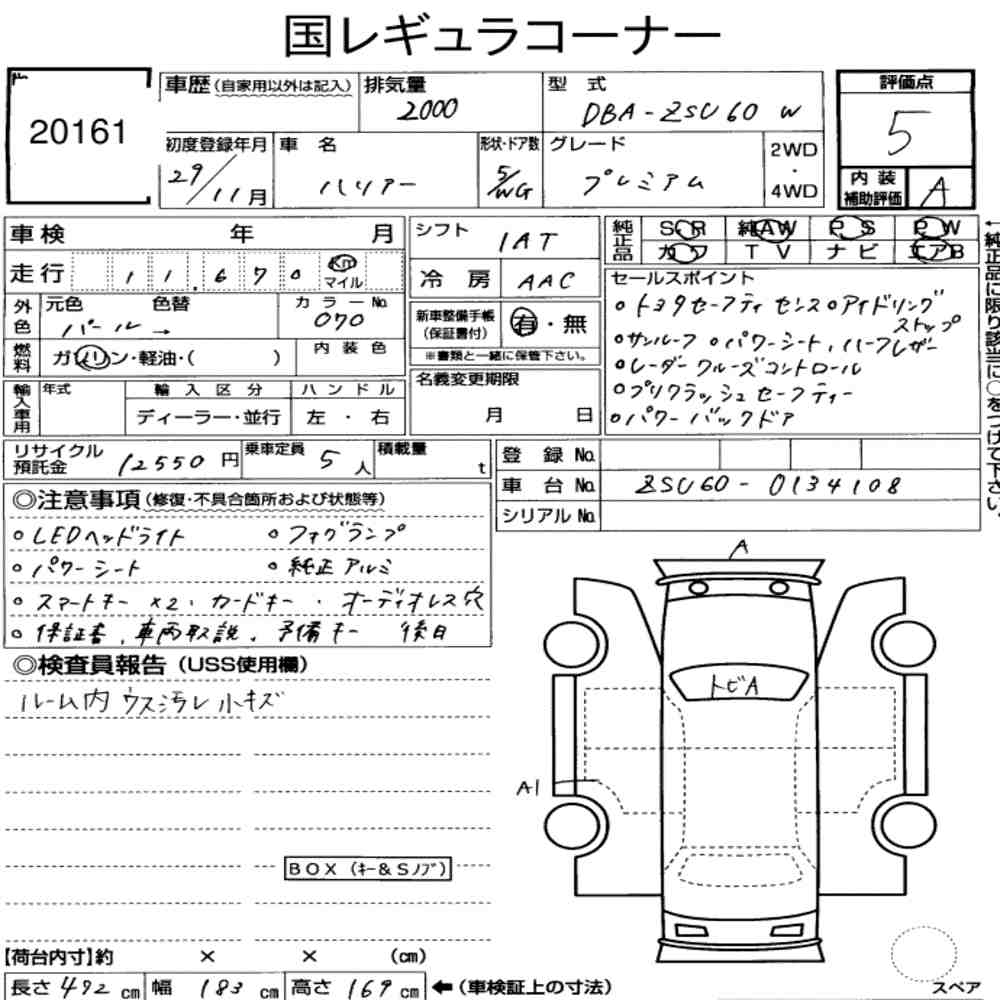 国レギュラコーナー
20161
車歴(自家用以外は記入) 排気量 2000 型式 DBA-ZSU60 W
評価点 5
初度登録年月 29/11月 車名 ハリアー 形状・ドア数 5/WG グレード プレミアム 2WD・4WD
内装補助評価 A
車検 年 月
走行 11.670 Km マイル
外色 元色 パール→ 色替 カラーNo. 070
燃料 ガソリン・軽油・( ) 内装色
輸入車用 年式 輸入区分 ハンドル
ディーラー・並行 左・右
シフト IAT
冷房 AAC
新車整備手帳(保証書付) 有・無
※書類と一緒に保管下さい。
名義変更期限
月 日
純正品 S・R 純AW P・S P・W
カワ TV ナビ エアB
←純正品に限り該当に○をつけて下さい。
セールスポイント
○トヨタセーフティセンス○アイドリング
ストップ
○サンルーフ ○パワーシート、ハーフレザー
○レーダークルーズコントロール
○プリクラッシュセーフティー
○パワーバックドア
リサイクル預託金 12550円 乗車定員 5人 積載量 t
登録No.
車台No. ZSU60-0134108
シリアルNo.
◎注意事項(修復・不具合箇所および状態等)
○LEDヘッドライト ○フォグランプ
○パワーシート ○純正アルミ
○スマートキー×2・カードキー・オーディオレス穴
○保証書、車両取説、予備キー 後日
◎検査員報告(USS使用欄)
ルーム内ウス汚レ小キズ
BOX(キー&Sノブ)
A
トビA
A1
【荷台内寸】約 × × (cm)
長さ 492cm 幅 183cm 高さ 169cm ←(車検証上の寸法)
スペア